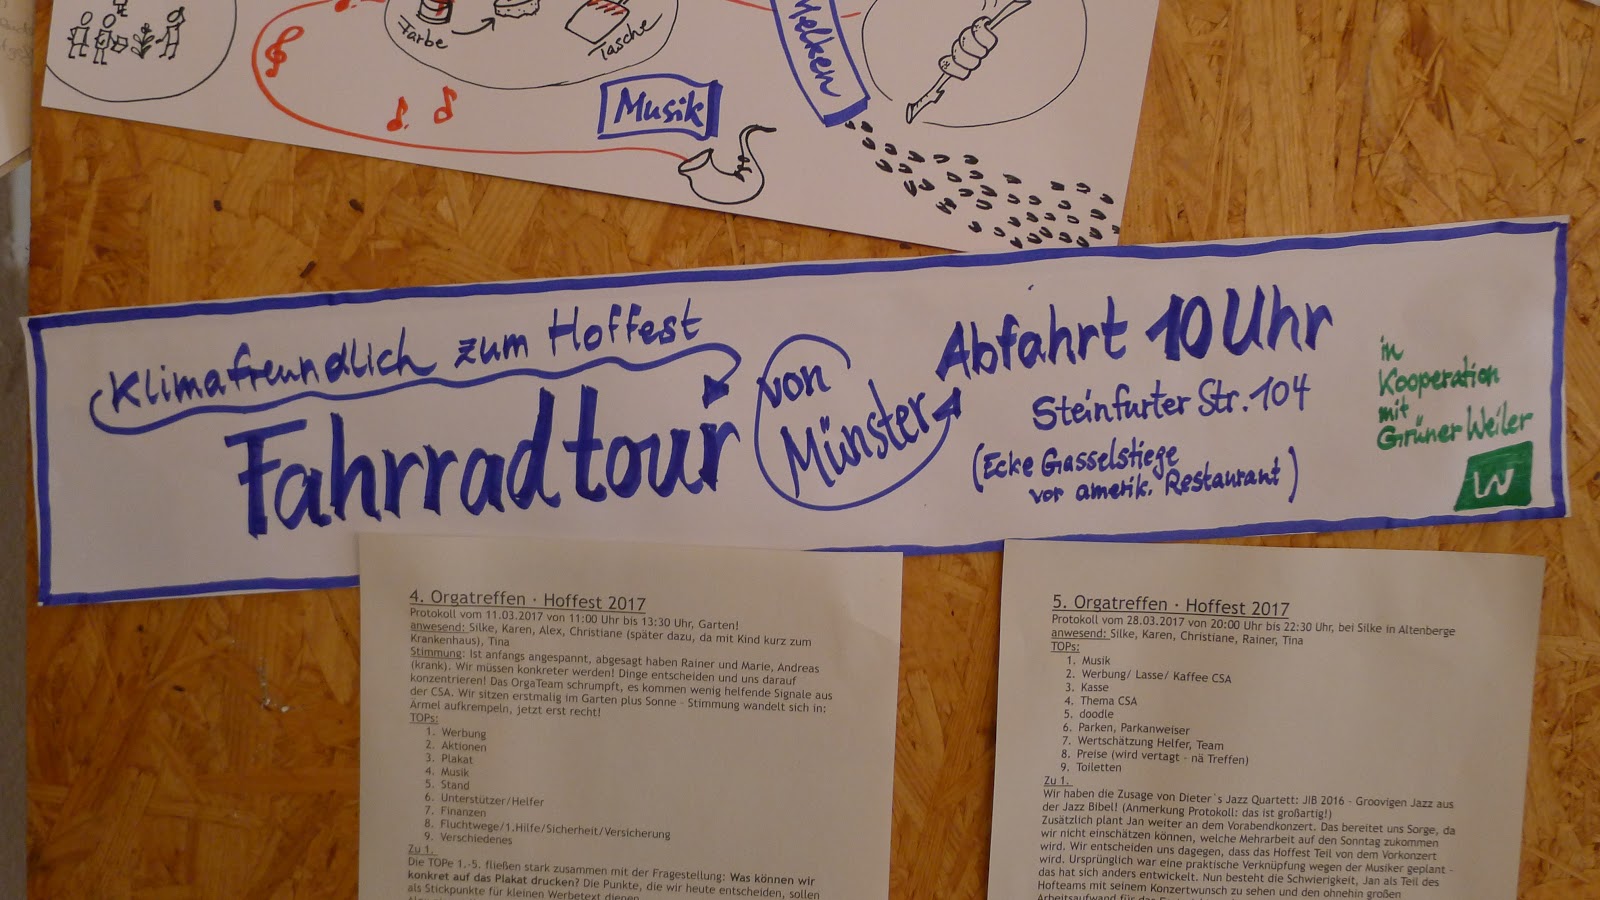 Farbe
Tasche
Melken
Musik
Klimafreundlich zum Hoffest
Fahrradtour
von
Münster
Abfahrt 10 Uhr
Steinfurter Str. 104
(Ecke Gasselstiege
vor amerik. Restaurant)
in
Kooperation
mit
Grüner Weiler
W
4. Orgatreffen · Hoffest 2017
Protokoll vom 11.03.2017 von 11:00 Uhr bis 13:30 Uhr, Garten!
anwesend: Silke, Karen, Alex, Christiane (später dazu, da mit Kind kurz zum
Krankenhaus), Tina
Stimmung: Ist anfangs angespannt, abgesagt haben Rainer und Marie, Andreas
(krank). Wir müssen konkreter werden! Dinge entscheiden und uns darauf
konzentrieren! Das OrgaTeam schrumpft, es kommen wenig helfende Signale aus
der CSA. Wir sitzen erstmalig im Garten plus Sonne - Stimmung wandelt sich in:
Ärmel aufkrempeln, jetzt erst recht!
TOPs:
1. Werbung
2. Aktionen
3. Plakat
4. Musik
5. Stand
6. Unterstützer/Helfer
7. Finanzen
8. Fluchtwege/1.Hilfe/Sicherheit/Versicherung
9. Verschiedenes
Zu 1.
Die TOPe 1.-5. fließen stark zusammen mit der Fragestellung: Was können wir
konkret auf das Plakat drucken? Die Punkte, die wir heute entscheiden, sollen
als Stickpunkte für kleinen Werbetext dienen.
5. Orgatreffen · Hoffest 2017
Protokoll vom 28.03.2017 von 20:00 Uhr bis 22:30 Uhr, bei Silke in Altenberge
anwesend: Silke, Karen, Christiane, Rainer, Tina
TOPs:
1. Musik
2. Werbung/ Lasse/ Kaffee CSA
3. Kasse
4. Thema CSA
5. doodle
6. Parken, Parkanweiser
7. Wertschätzung Helfer, Team
8. Preise (wird vertagt - nä Treffen)
9. Toiletten
Zu 1.
Wir haben die Zusage von Dieter`s Jazz Quartett: JIB 2016 - Groovigen Jazz aus
der Jazz Bibel! (Anmerkung Protokoll: das ist großartig!)
Zusätzlich plant Jan weiter an dem Vorabendkonzert. Das bereitet uns Sorge, da
wir nicht einschätzen können, welche Mehrarbeit auf den Sonntag zukommen
wird. Wir entscheiden uns dagegen, dass das Hoffest Teil von dem Vorkonzert
wird. Ursprünglich war eine praktische Verknüpfung wegen der Musiker geplant -
das hat sich anders entwickelt. Nun besteht die Schwierigkeit, Jan als Teil des
Hofteams mit seinem Konzertwunsch zu sehen und den ohnehin großen